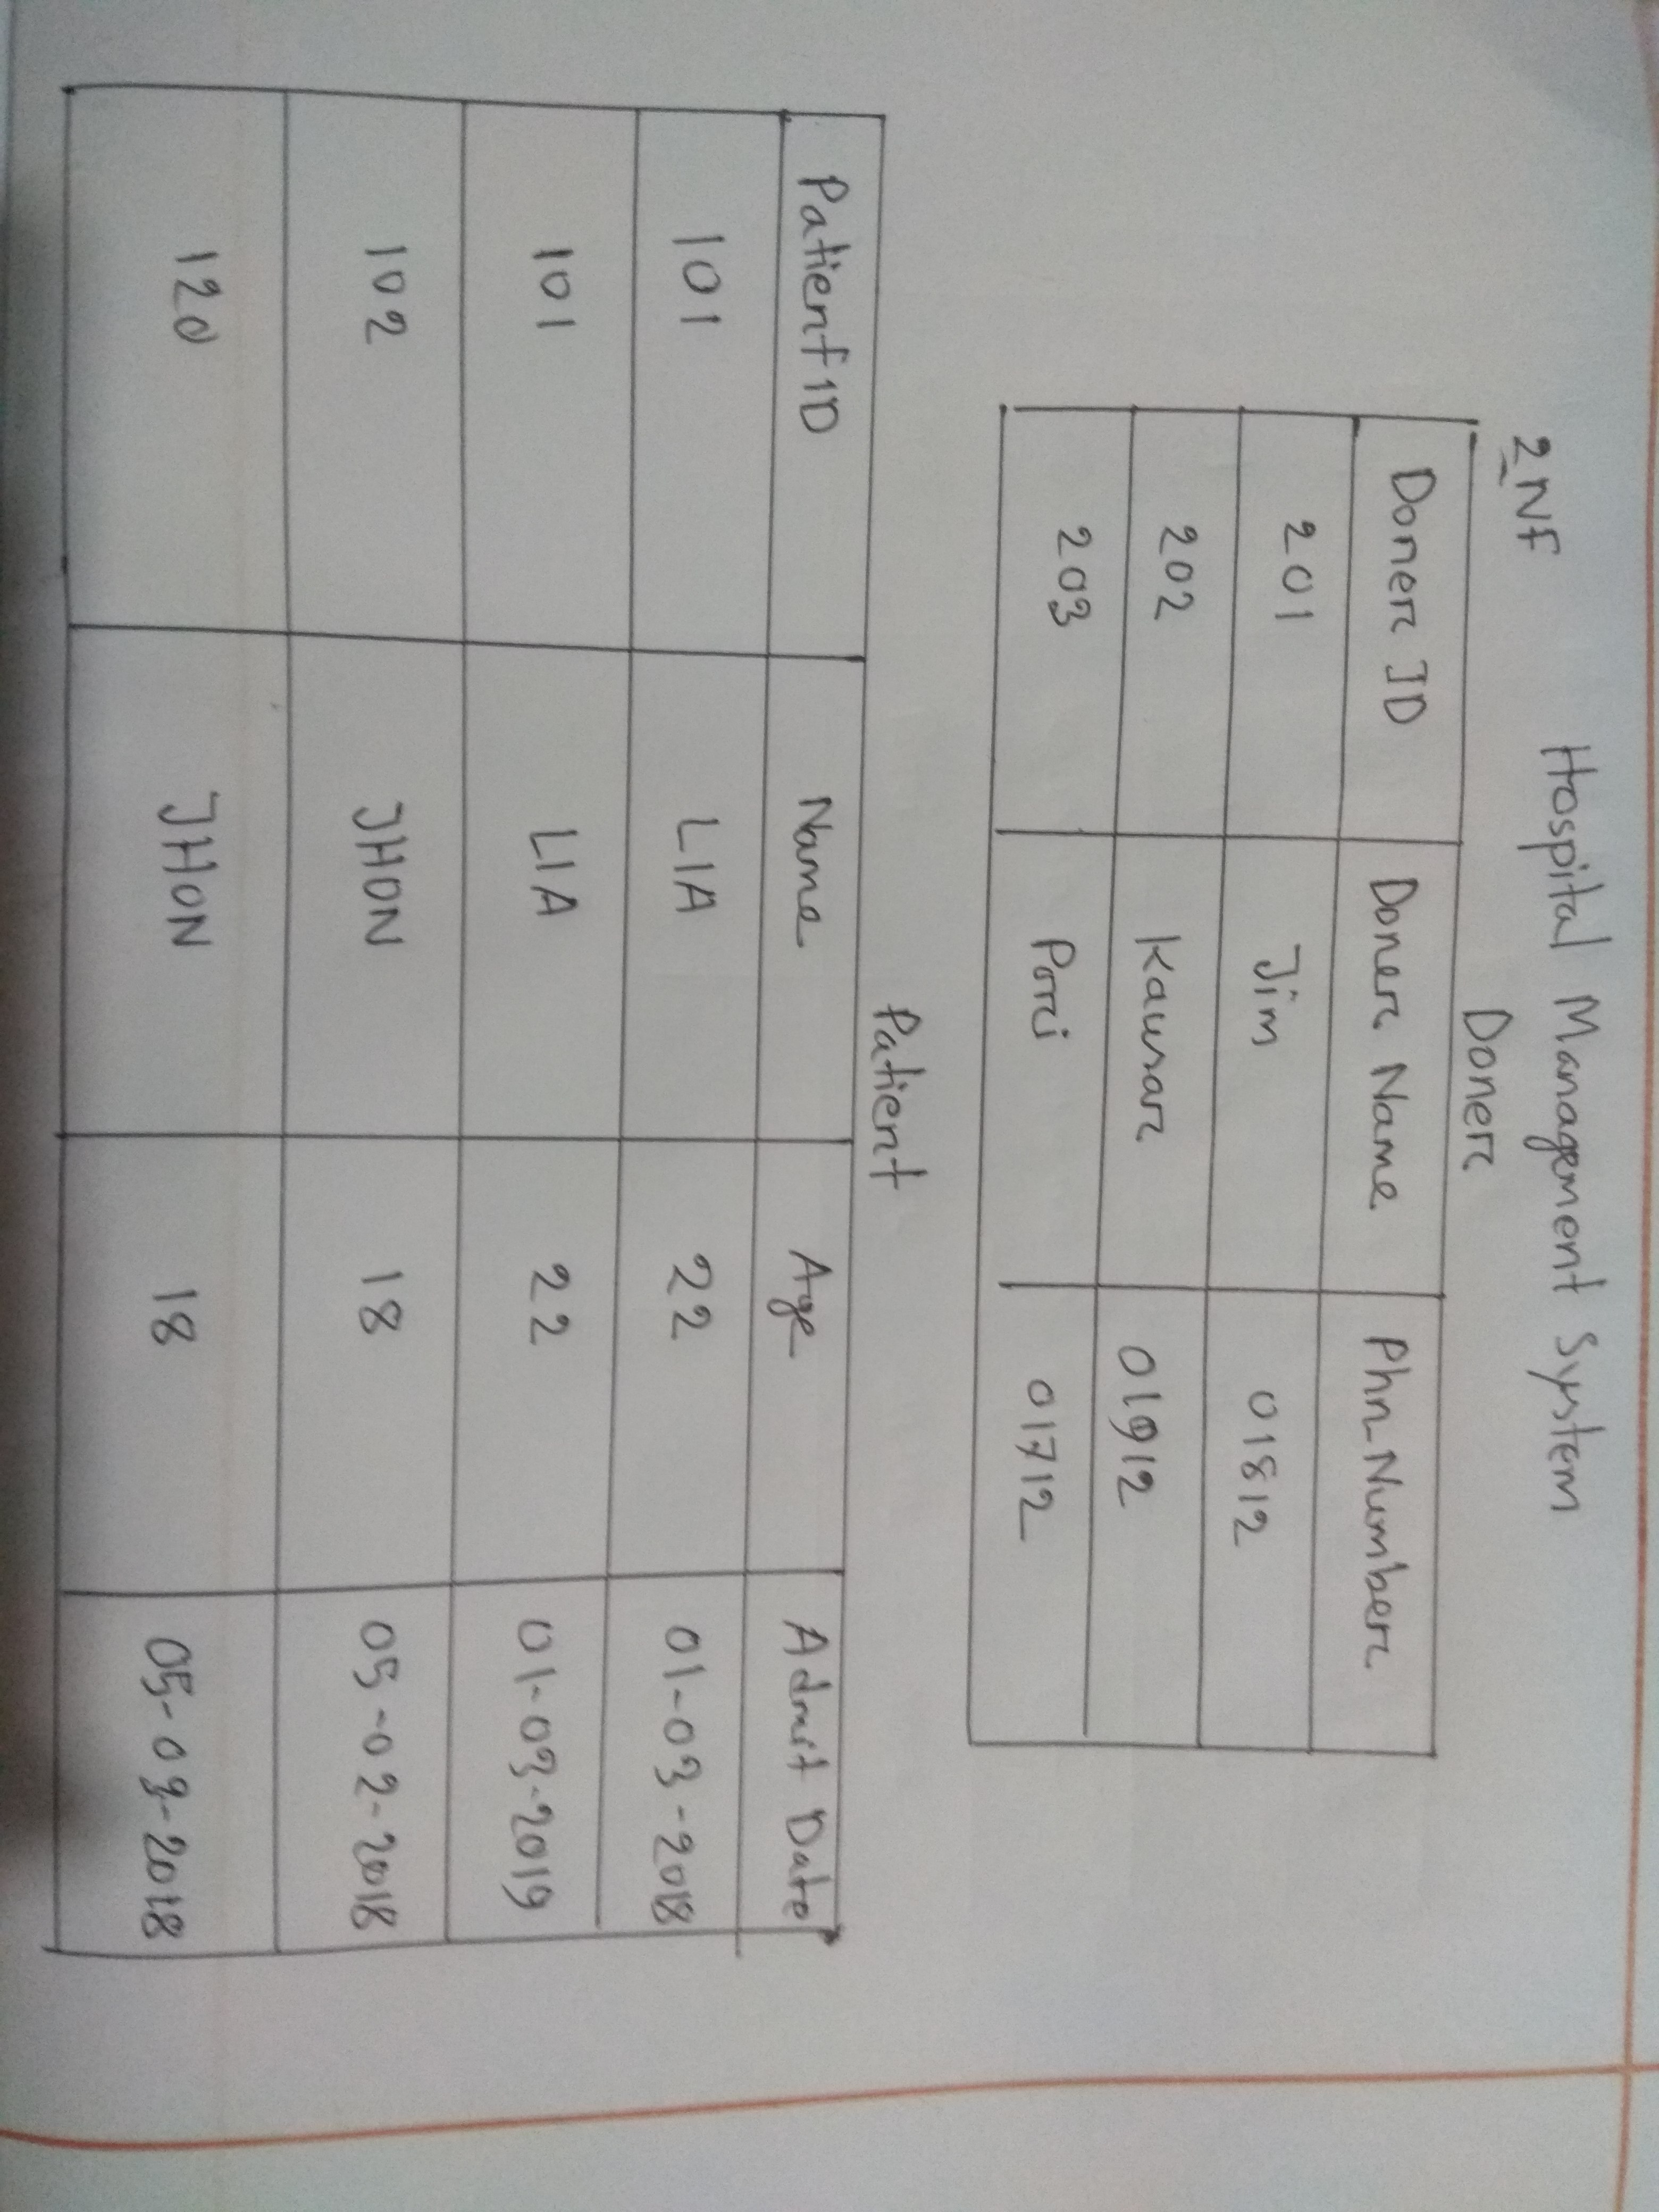 Hospital Management System
2NF
Doner
Doner ID Doner Name Phn_Number
201 Jim 01812
202 Kausar 01912
203 Porri 01712
Patient
Patient ID Name Age Admit Date
101 LIA 22 01-03-2018
101 LIA 22 01-03-2019
102 JHON 18 05-02-2018
120 JHON 18 05-03-2018